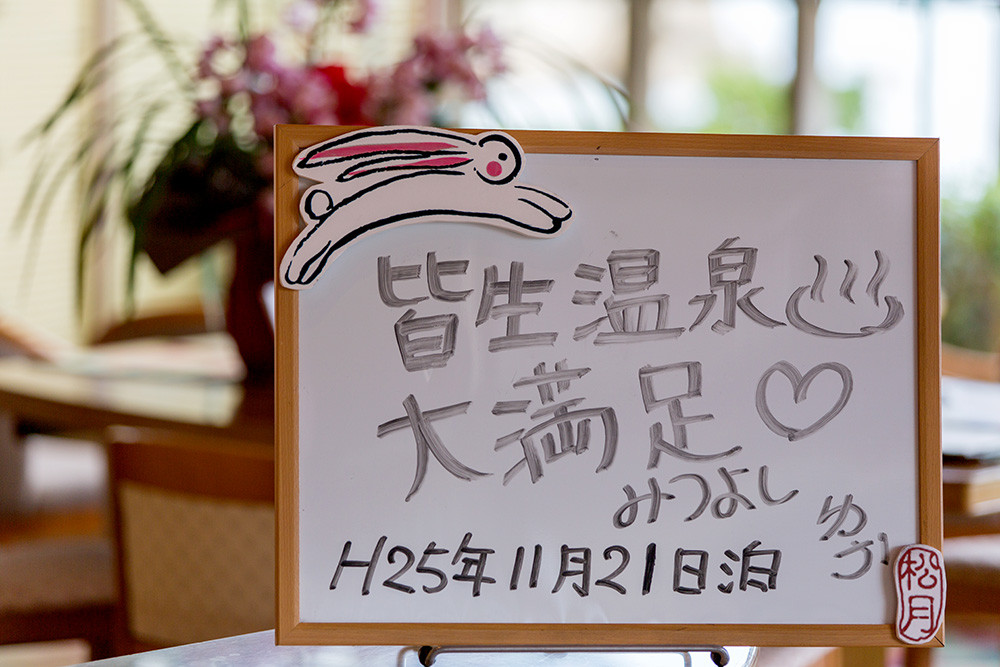 皆生温泉♨
大満足♡
みつよし
ゆか
H25年11月21日泊
松月